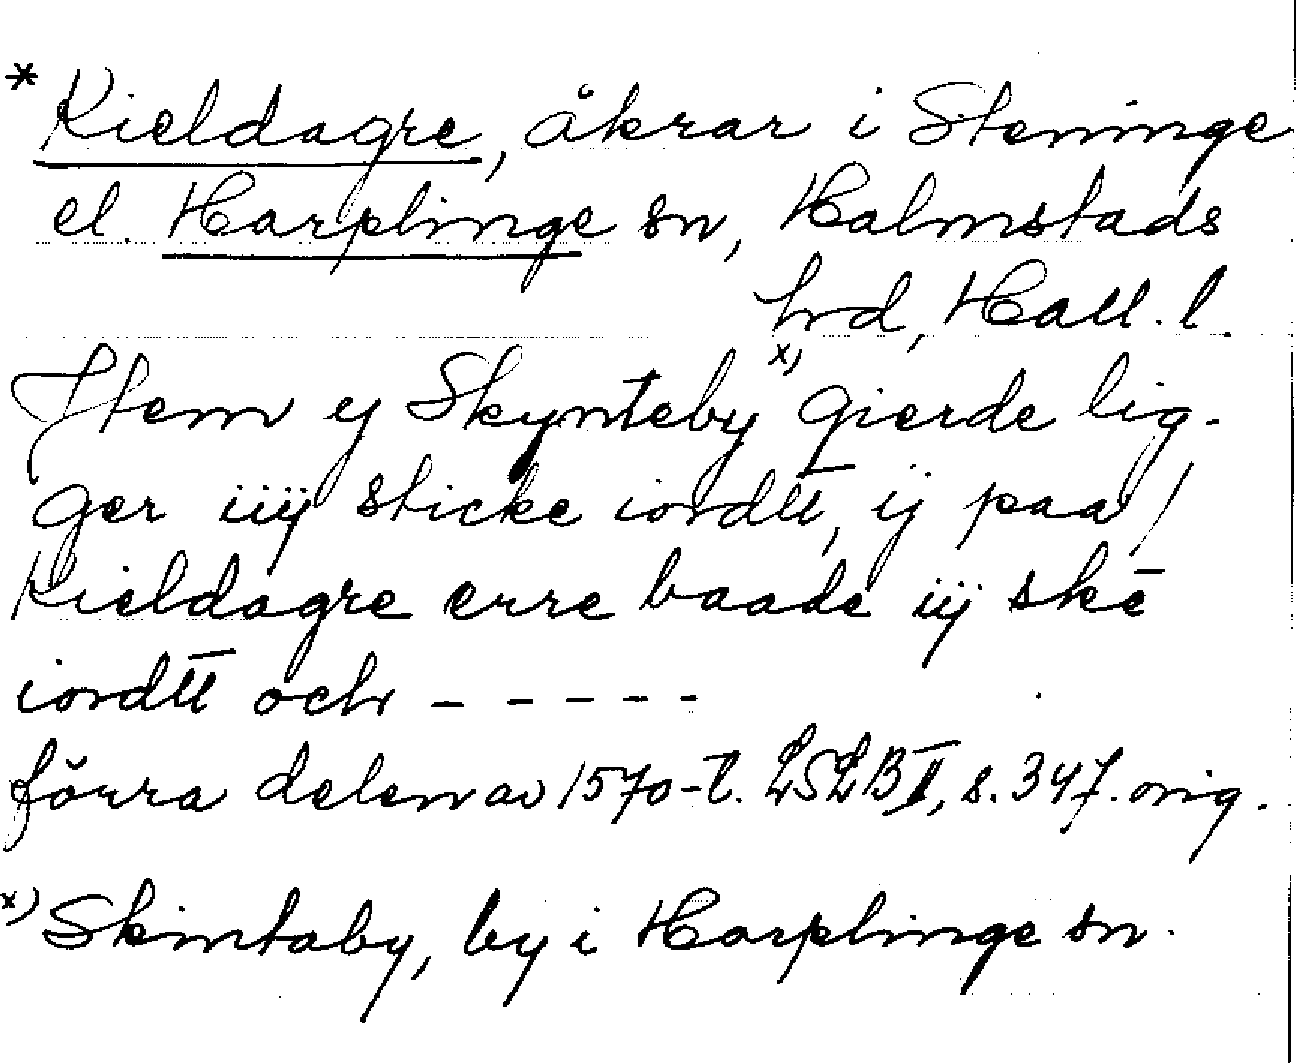 * Kieldagre, åkrar i Steninge
el. Harplinge sn, Halmstads
hrd, Hall. l.
Jtem ij Skynteby x) gierde lig-
ger iiij sticke iordtt, ij paa /
Kieldagre erre baade iij skē
iordtt och - - - - -
förra delen av 1570-t. LSLB II, s. 347. orig.
x) Skintaby, by i Harplinge sn.